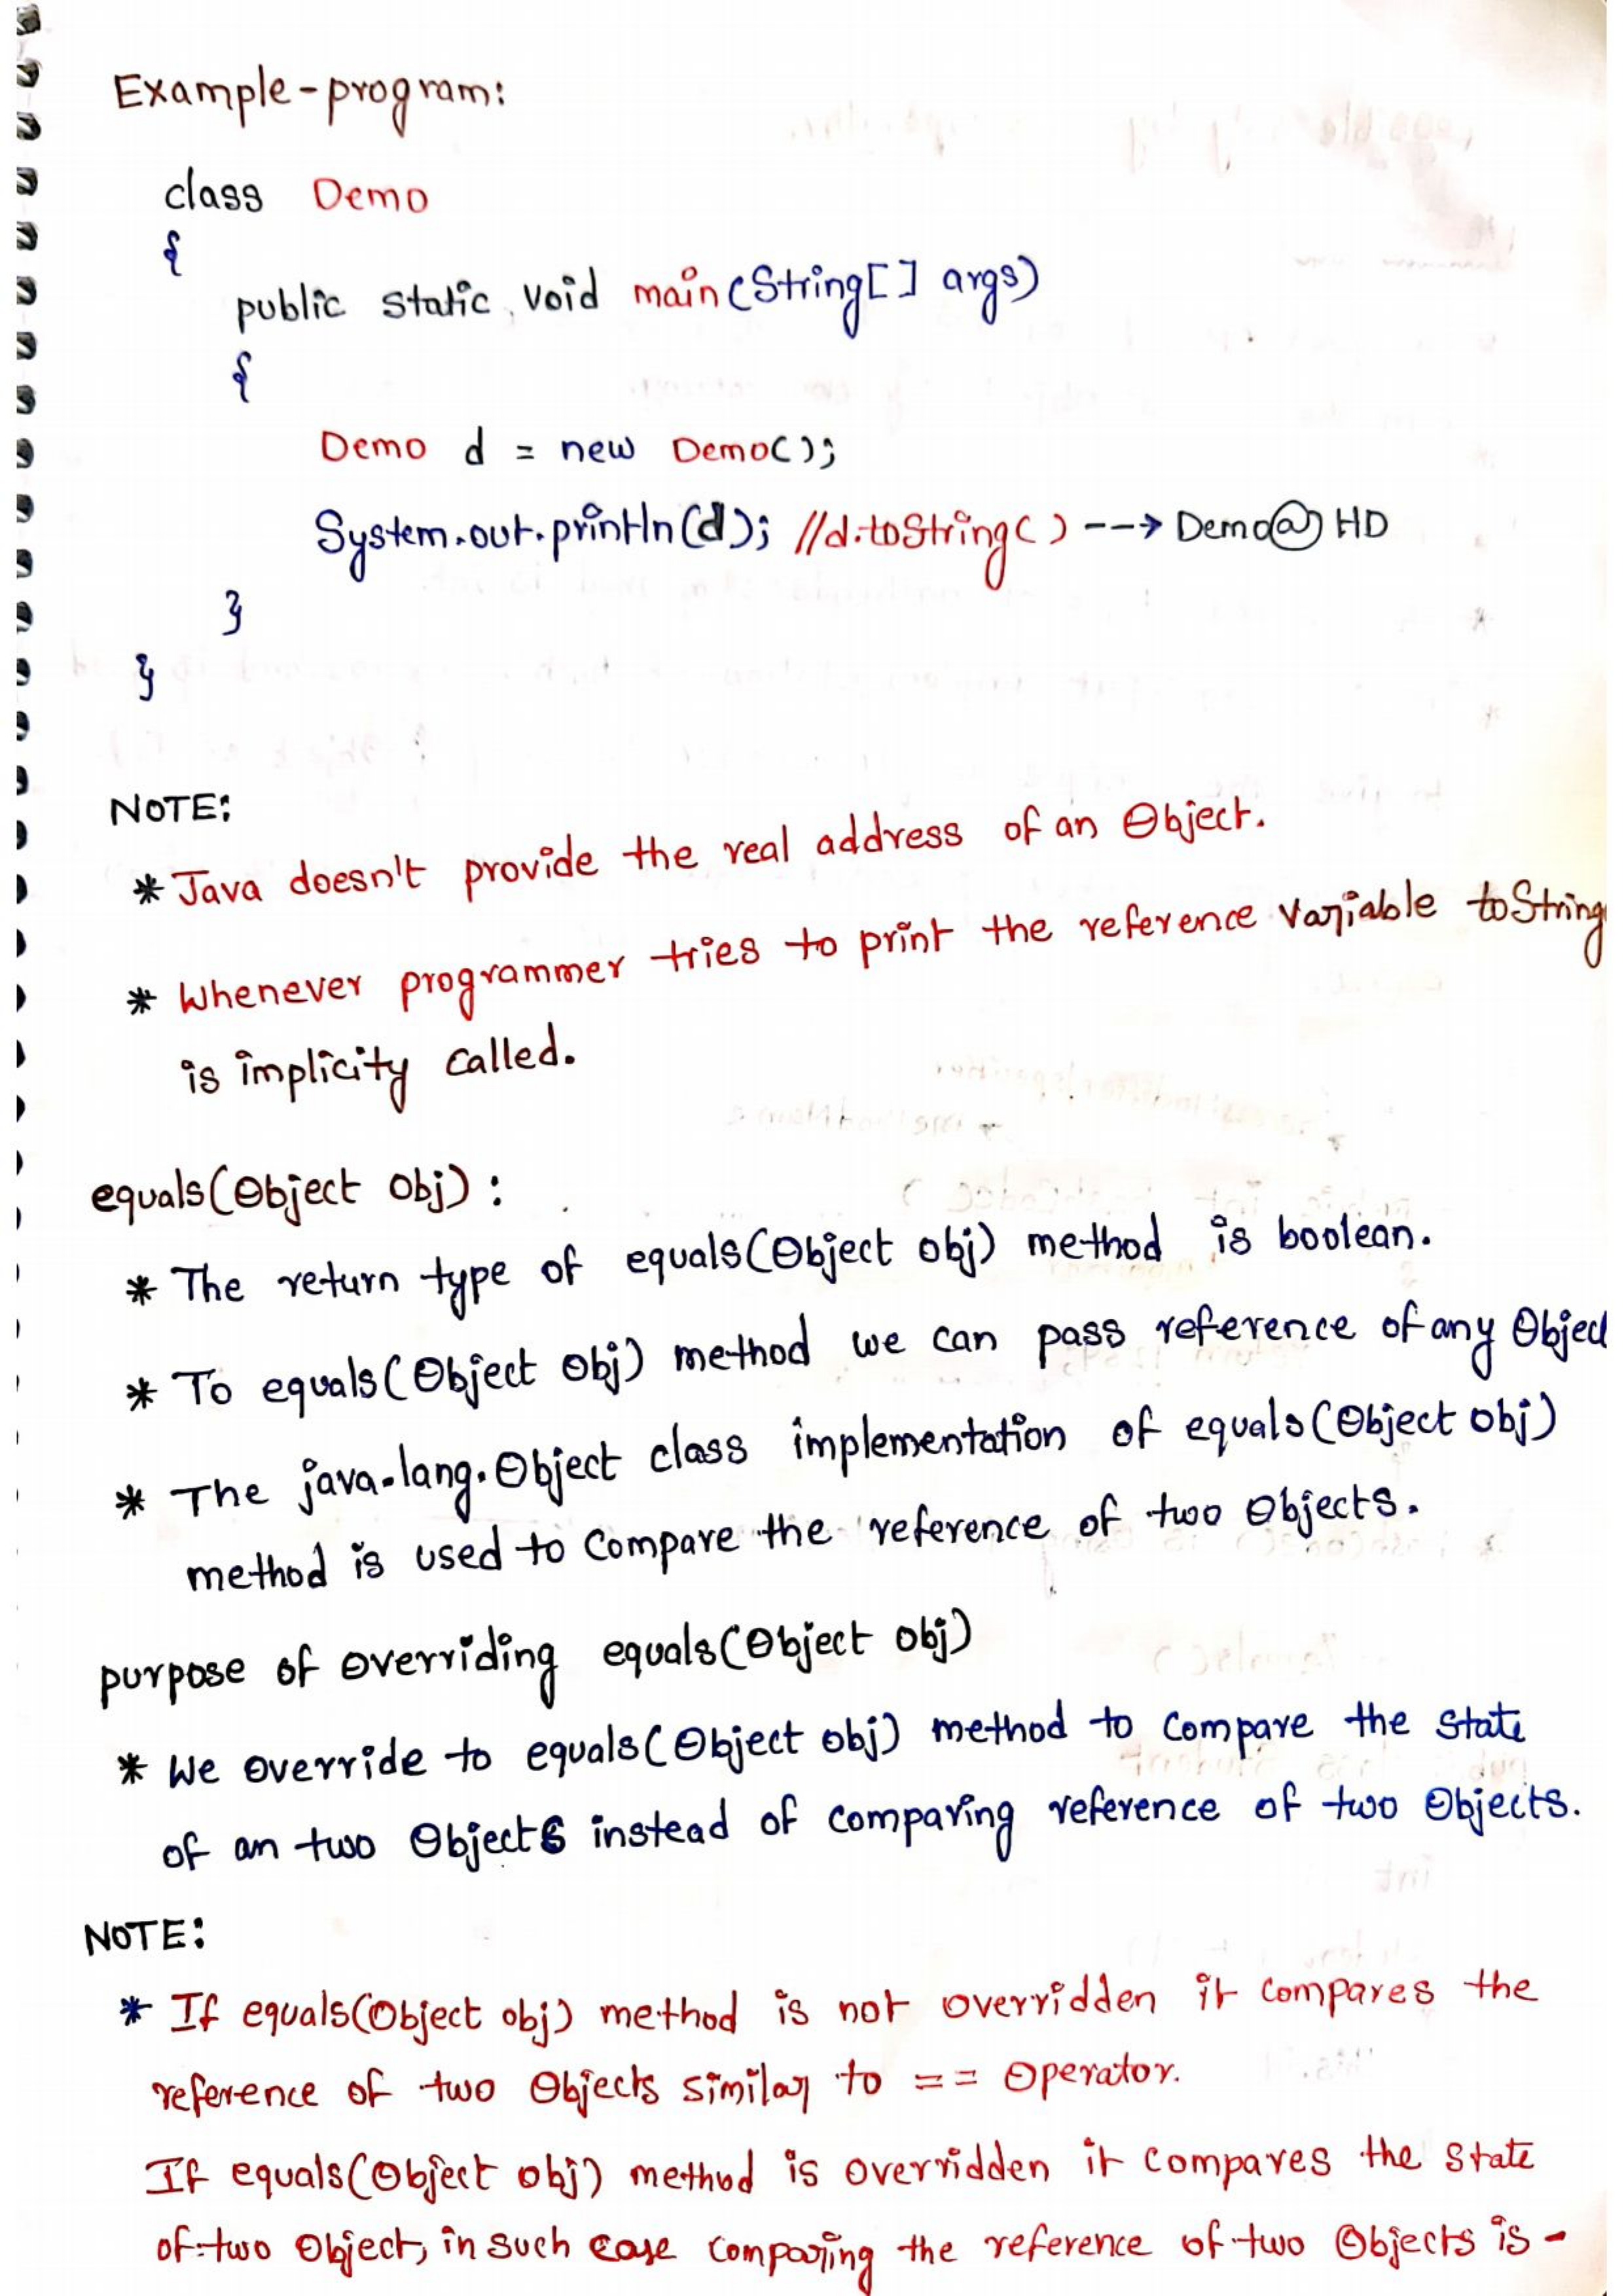 Example-program:
class Demo
{
public static void main(String[] args)
{
Demo d = new Demo();
System.out.println(d); //d.toString() ---> Demo@HD
}
}
NOTE:
* Java doesn't provide the real address of an Object.
* Whenever programmer tries to print the reference variable toString
is implicity called.
equals(Object obj):
* The return type of equals(Object obj) method is boolean.
* To equals(Object obj) method we can pass reference of any Objec
* The java.lang.Object class implementation of equals(Object obj)
method is used to compare the reference of two Objects.
purpose of overriding equals(Object obj)
* We override to equals(Object obj) method to compare the state
of an two Objects instead of comparing reference of two Objects.
NOTE:
* If equals(Object obj) method is not overridden it compares the
reference of two Objects similar to == Operator.
If equals(Object obj) method is overridden it compares the state
of two Object, in such case comparing the reference of two Objects is -